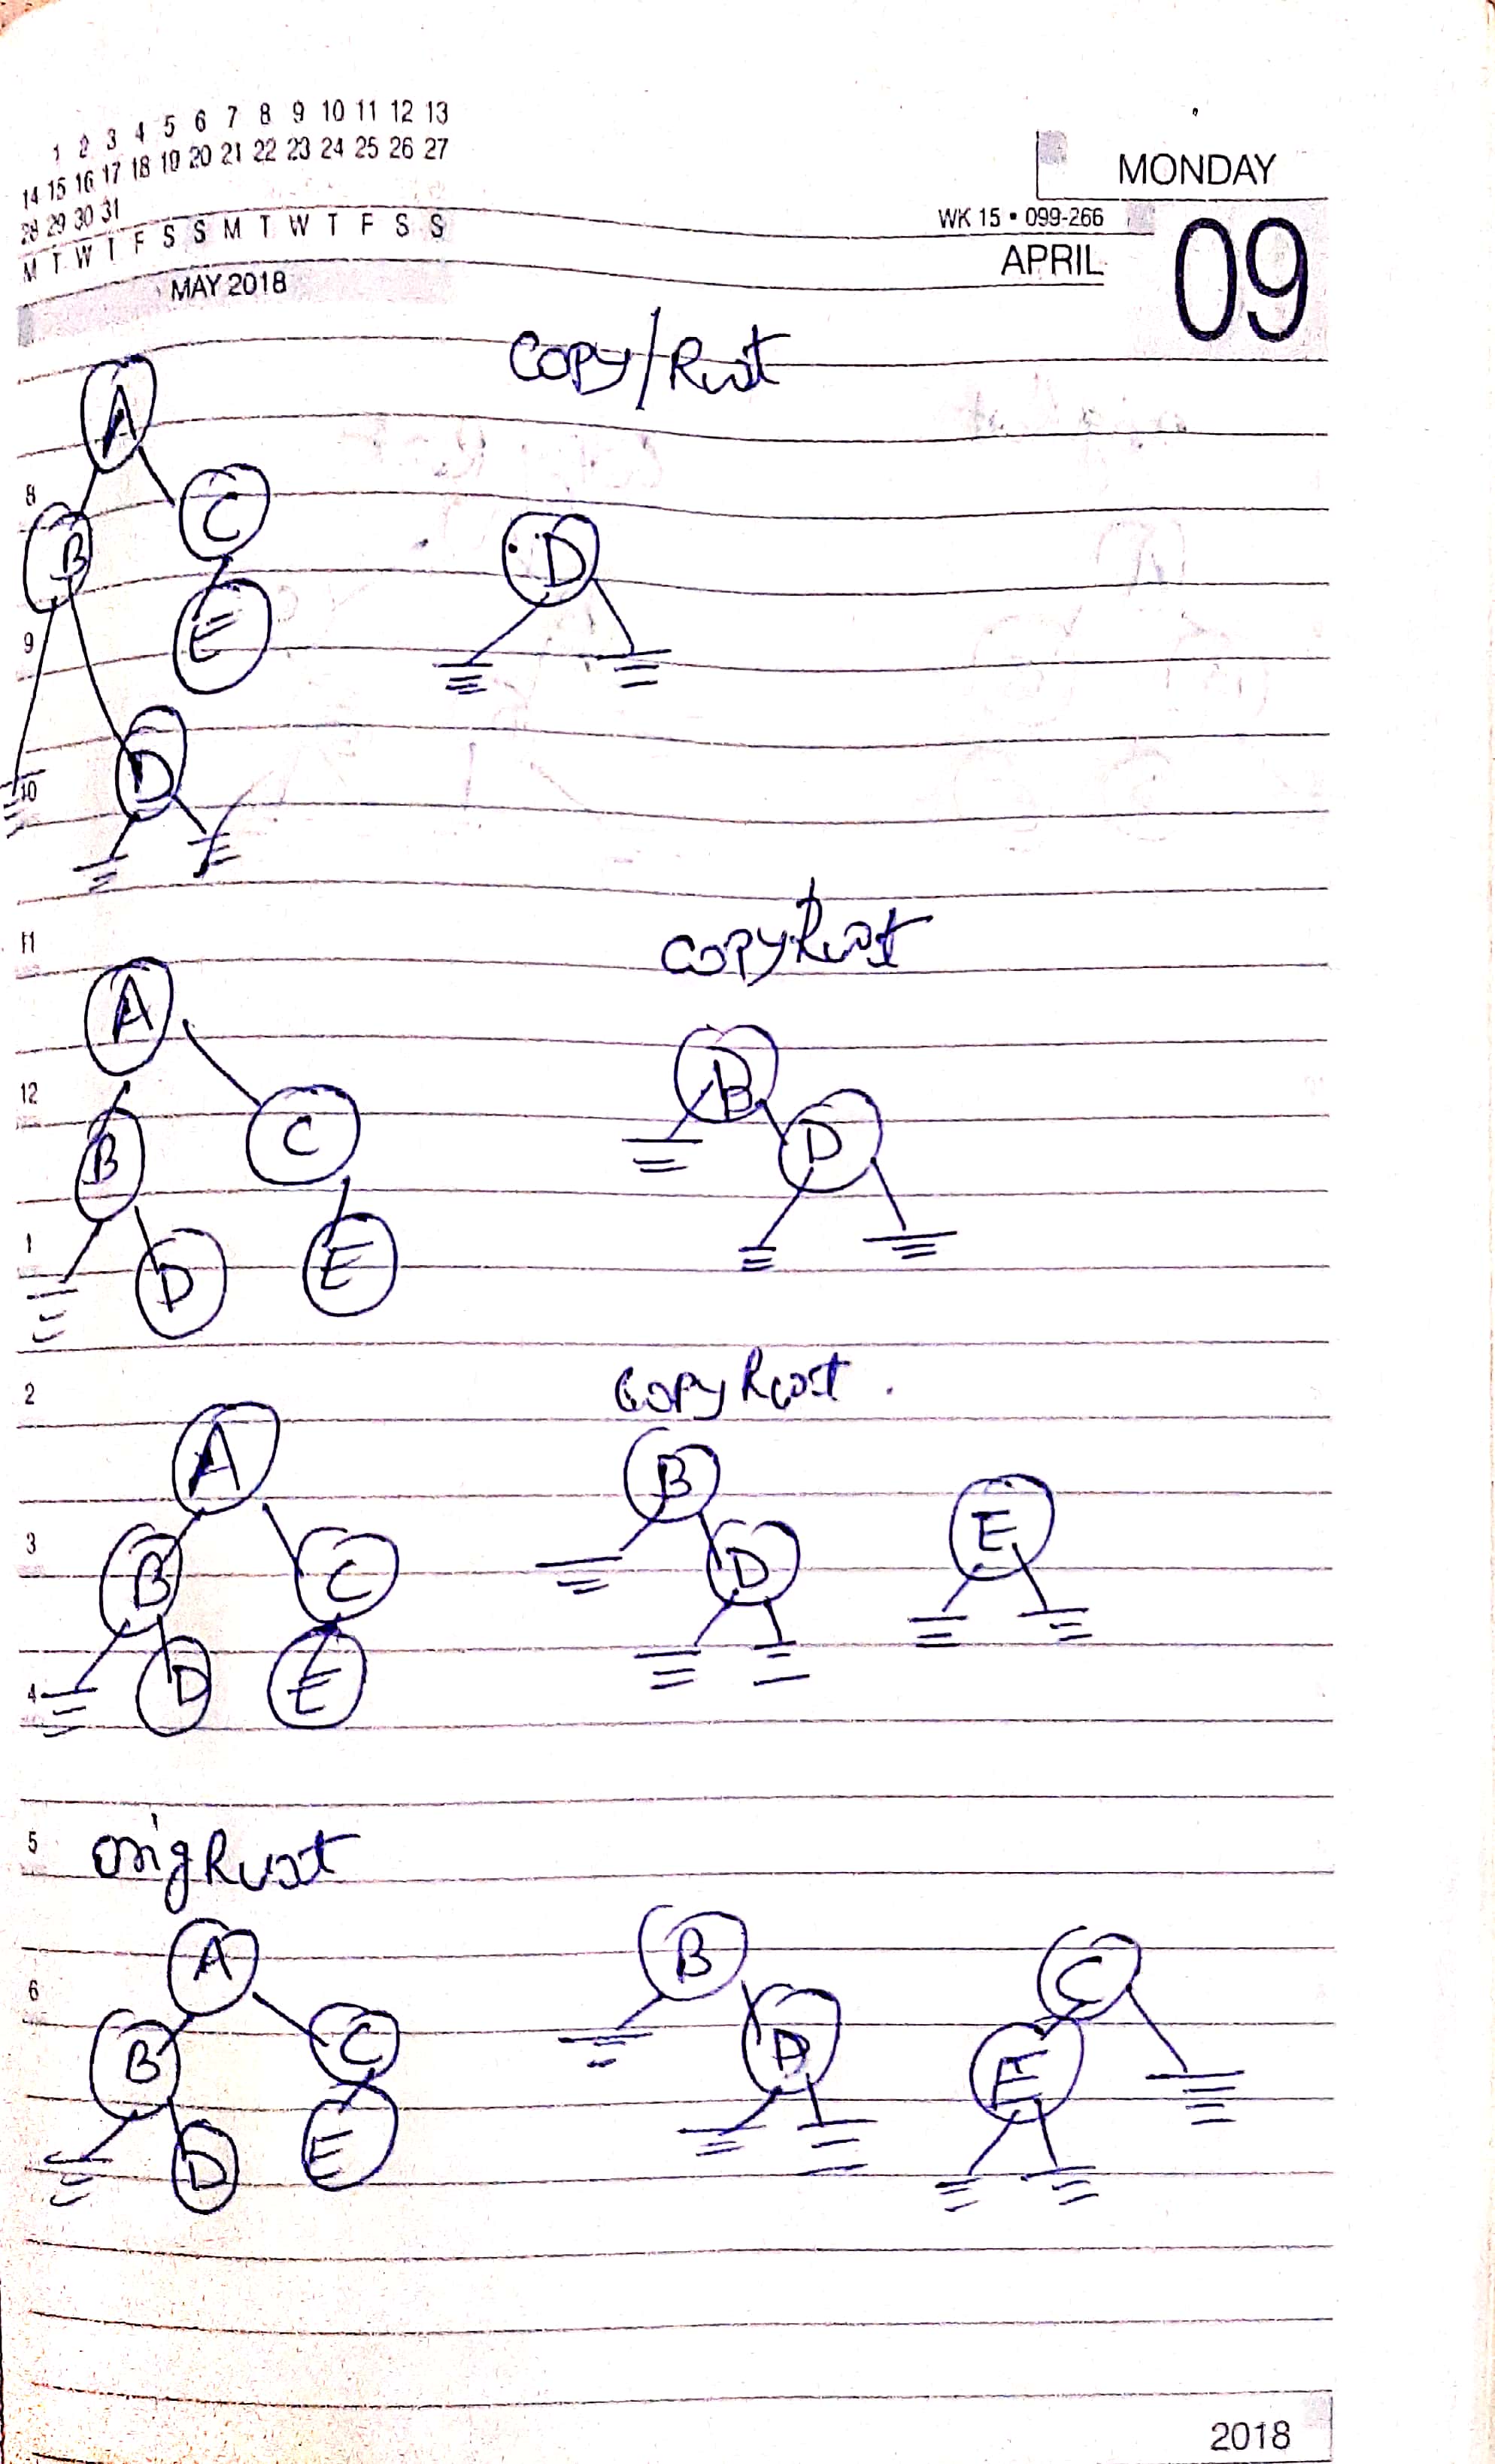 1 2 3 4 5 6 7 8 9 10 11 12 13
14 15 16 17 18 19 20 21 22 23 24 25 26 27
28 29 30 31
M T W T F S S M T W T F S S
MAY 2018
MONDAY
WK 15 • 099-266
APRIL
09
COPY/Root
A
8
C
B
D
9
E
10
D
11
COPYRoot
A
12
B
C
D
B
1
D
E
2
COPY Root .
A
B
E
3
B
C
D
4
D
E
5
origRoot
A
B
C
6
B
C
D
E
D
E
2018